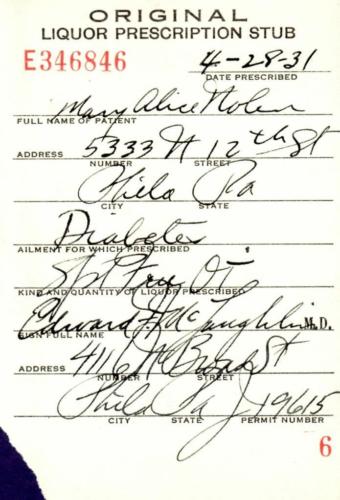 ORIGINAL
LIQUOR PRESCRIPTION STUB
E346846 4-28-31
DATE PRESCRIBED
Mary Alice Nolen
FULL NAME OF PATIENT
ADDRESS 5333 N 12th St
NUMBER STREET
Phila Pa
CITY STATE
Diabetes
AILMENT FOR WHICH PRESCRIBED
Spt Fru
KIND AND QUANTITY OF LIQUOR PRESCRIBED
Edward F. McLaughlin M.D.
SIGN FULL NAME
ADDRESS 4111 N Broad St
NUMBER STREET
Phila Pa J 19615
CITY STATE PERMIT NUMBER
6